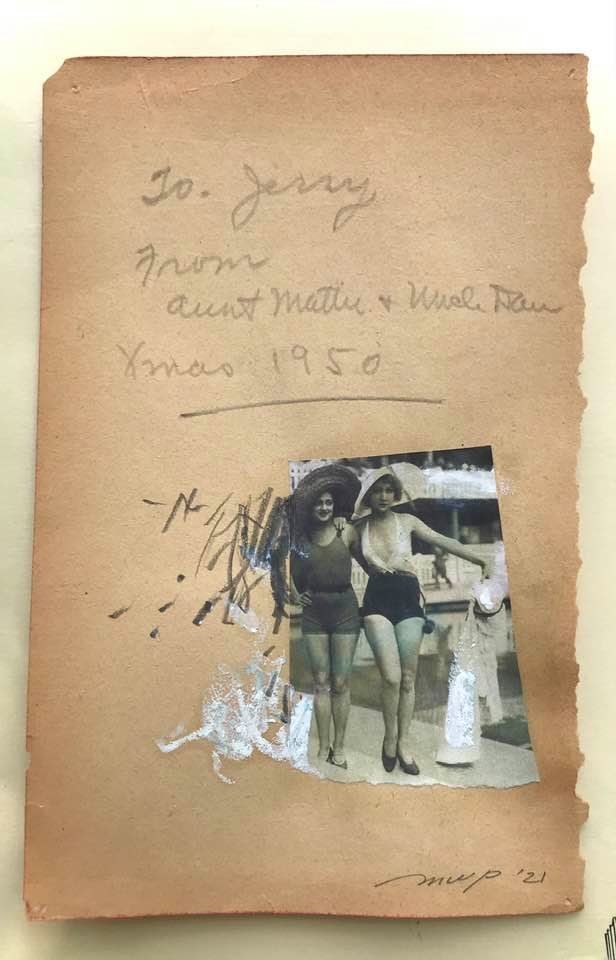 To. Jerry
From
Aunt Mattie & Uncle Dan
Xmas 1950
mwp '21